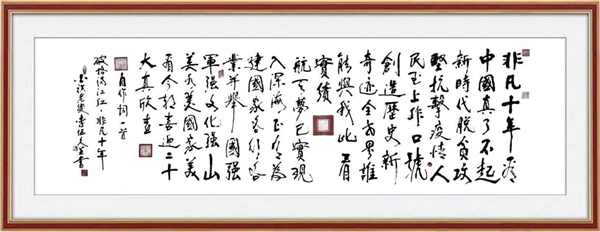 非凡十年
中國真了不起
新時代脫貧攻
堅抗擊疫情人
民至上非口號
創造歷史新
奇迹全世界誰
能與我比肩
實績
航天夢已實現
入深海正有為
建國家各行各
業并舉國強
軍強文化強山
美水美國家美
看今朝喜迎二十
大真欣
自作詞一首
破格滿江紅·非凡十年